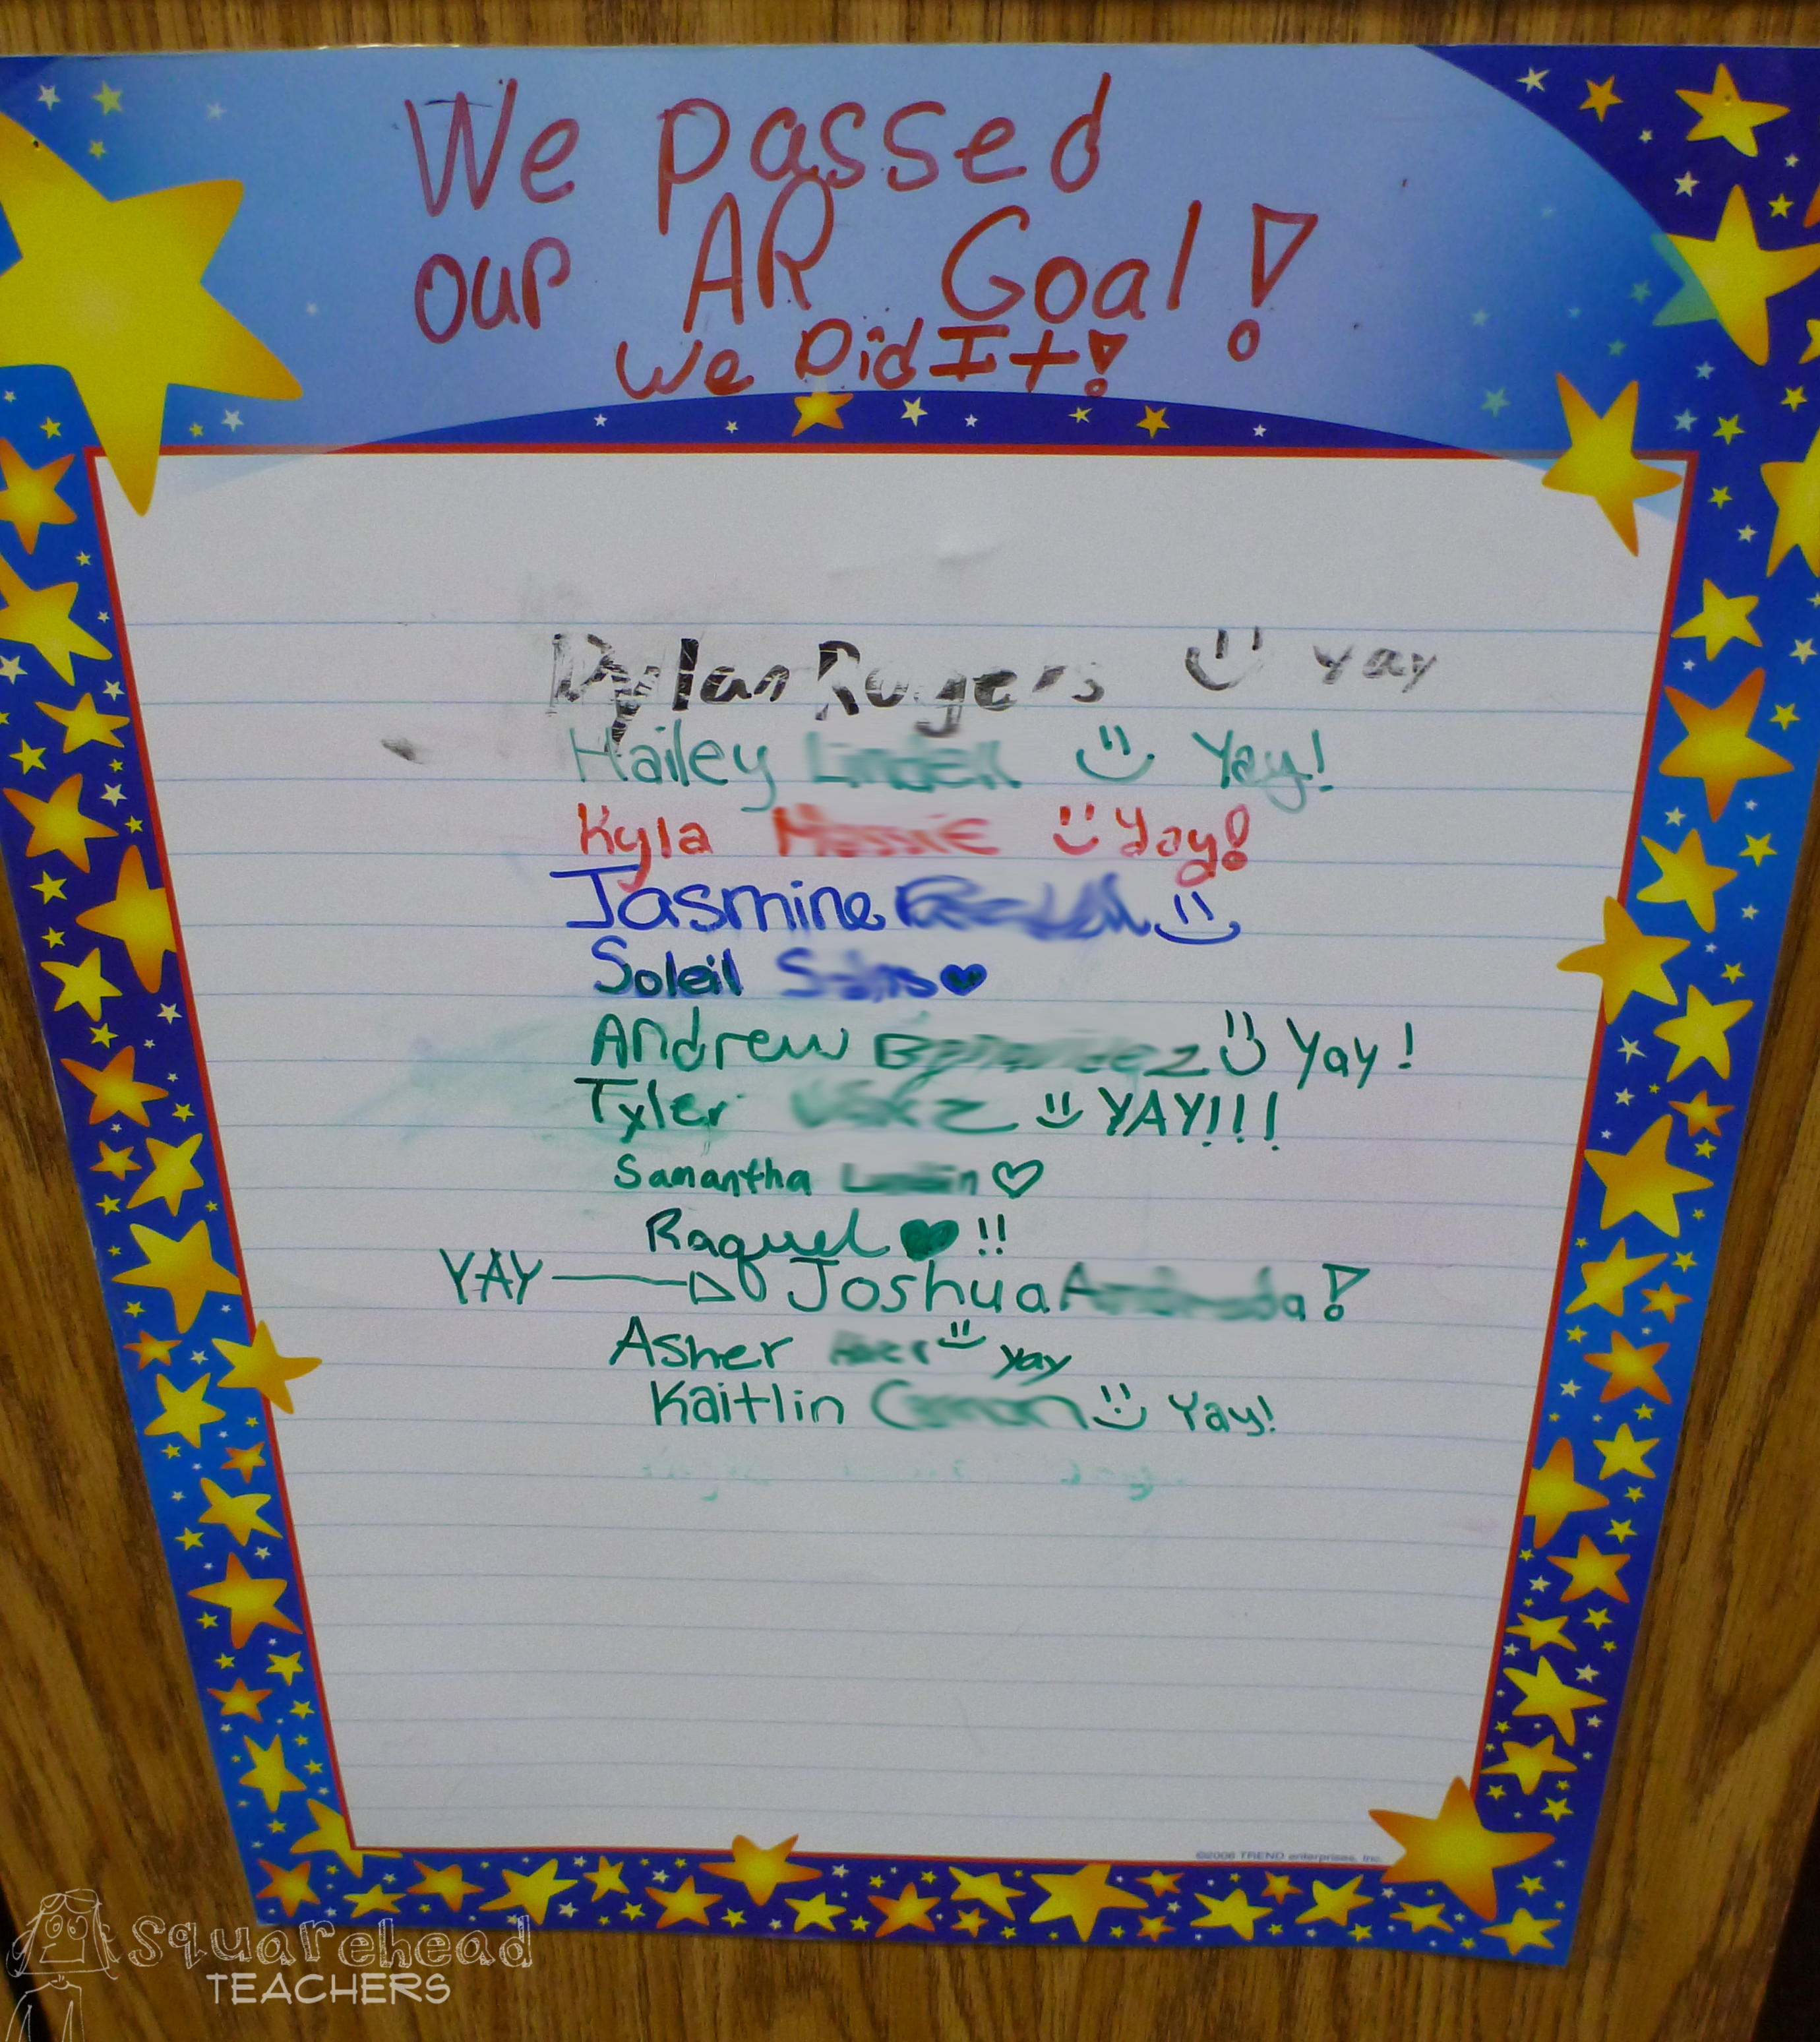 We passed
our AR Goal!
We Did It!
Dylan Rogers yay
Hailey Yay!
Kyla Yay!
Jasmine
Soleil
Andrew Yay!
Tyler YAY!!!
Samantha
Raquel !!
YAY Joshua !
Asher yay
Kaitlin Yay!
©2006 TREND enterprises, Inc.
Squarehead
TEACHERS